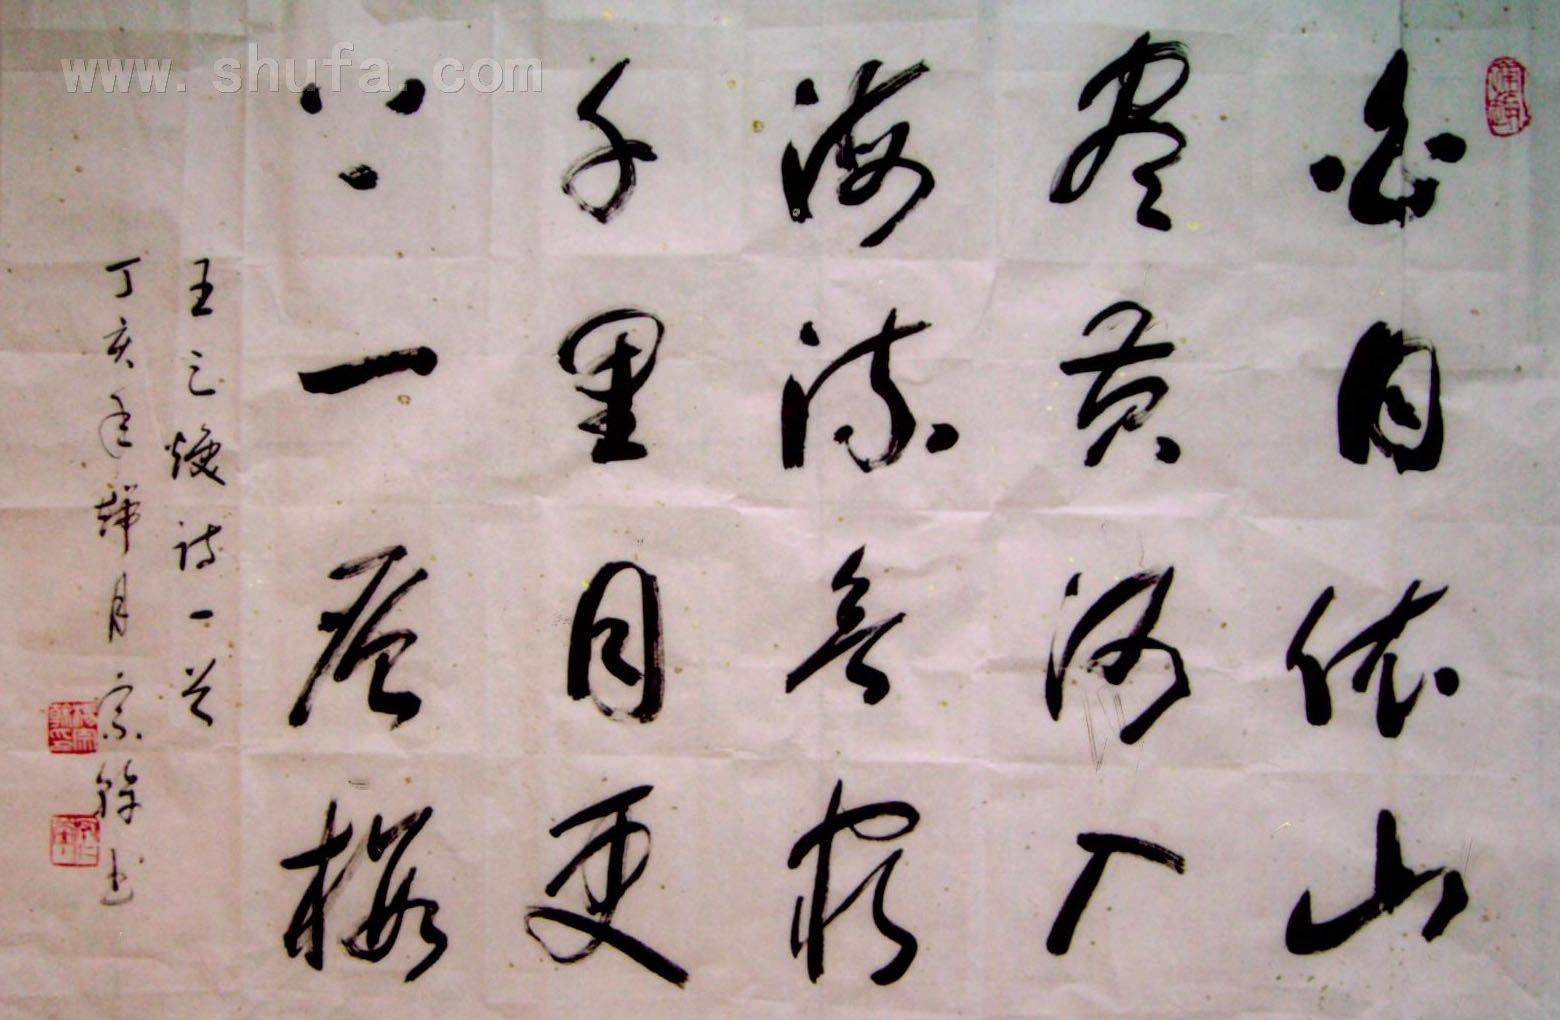 www.shufa.com
白日依山
尽黄河入
海流欲穷
千里目更
上一层楼
王之焕诗一首
丁亥年月宗书